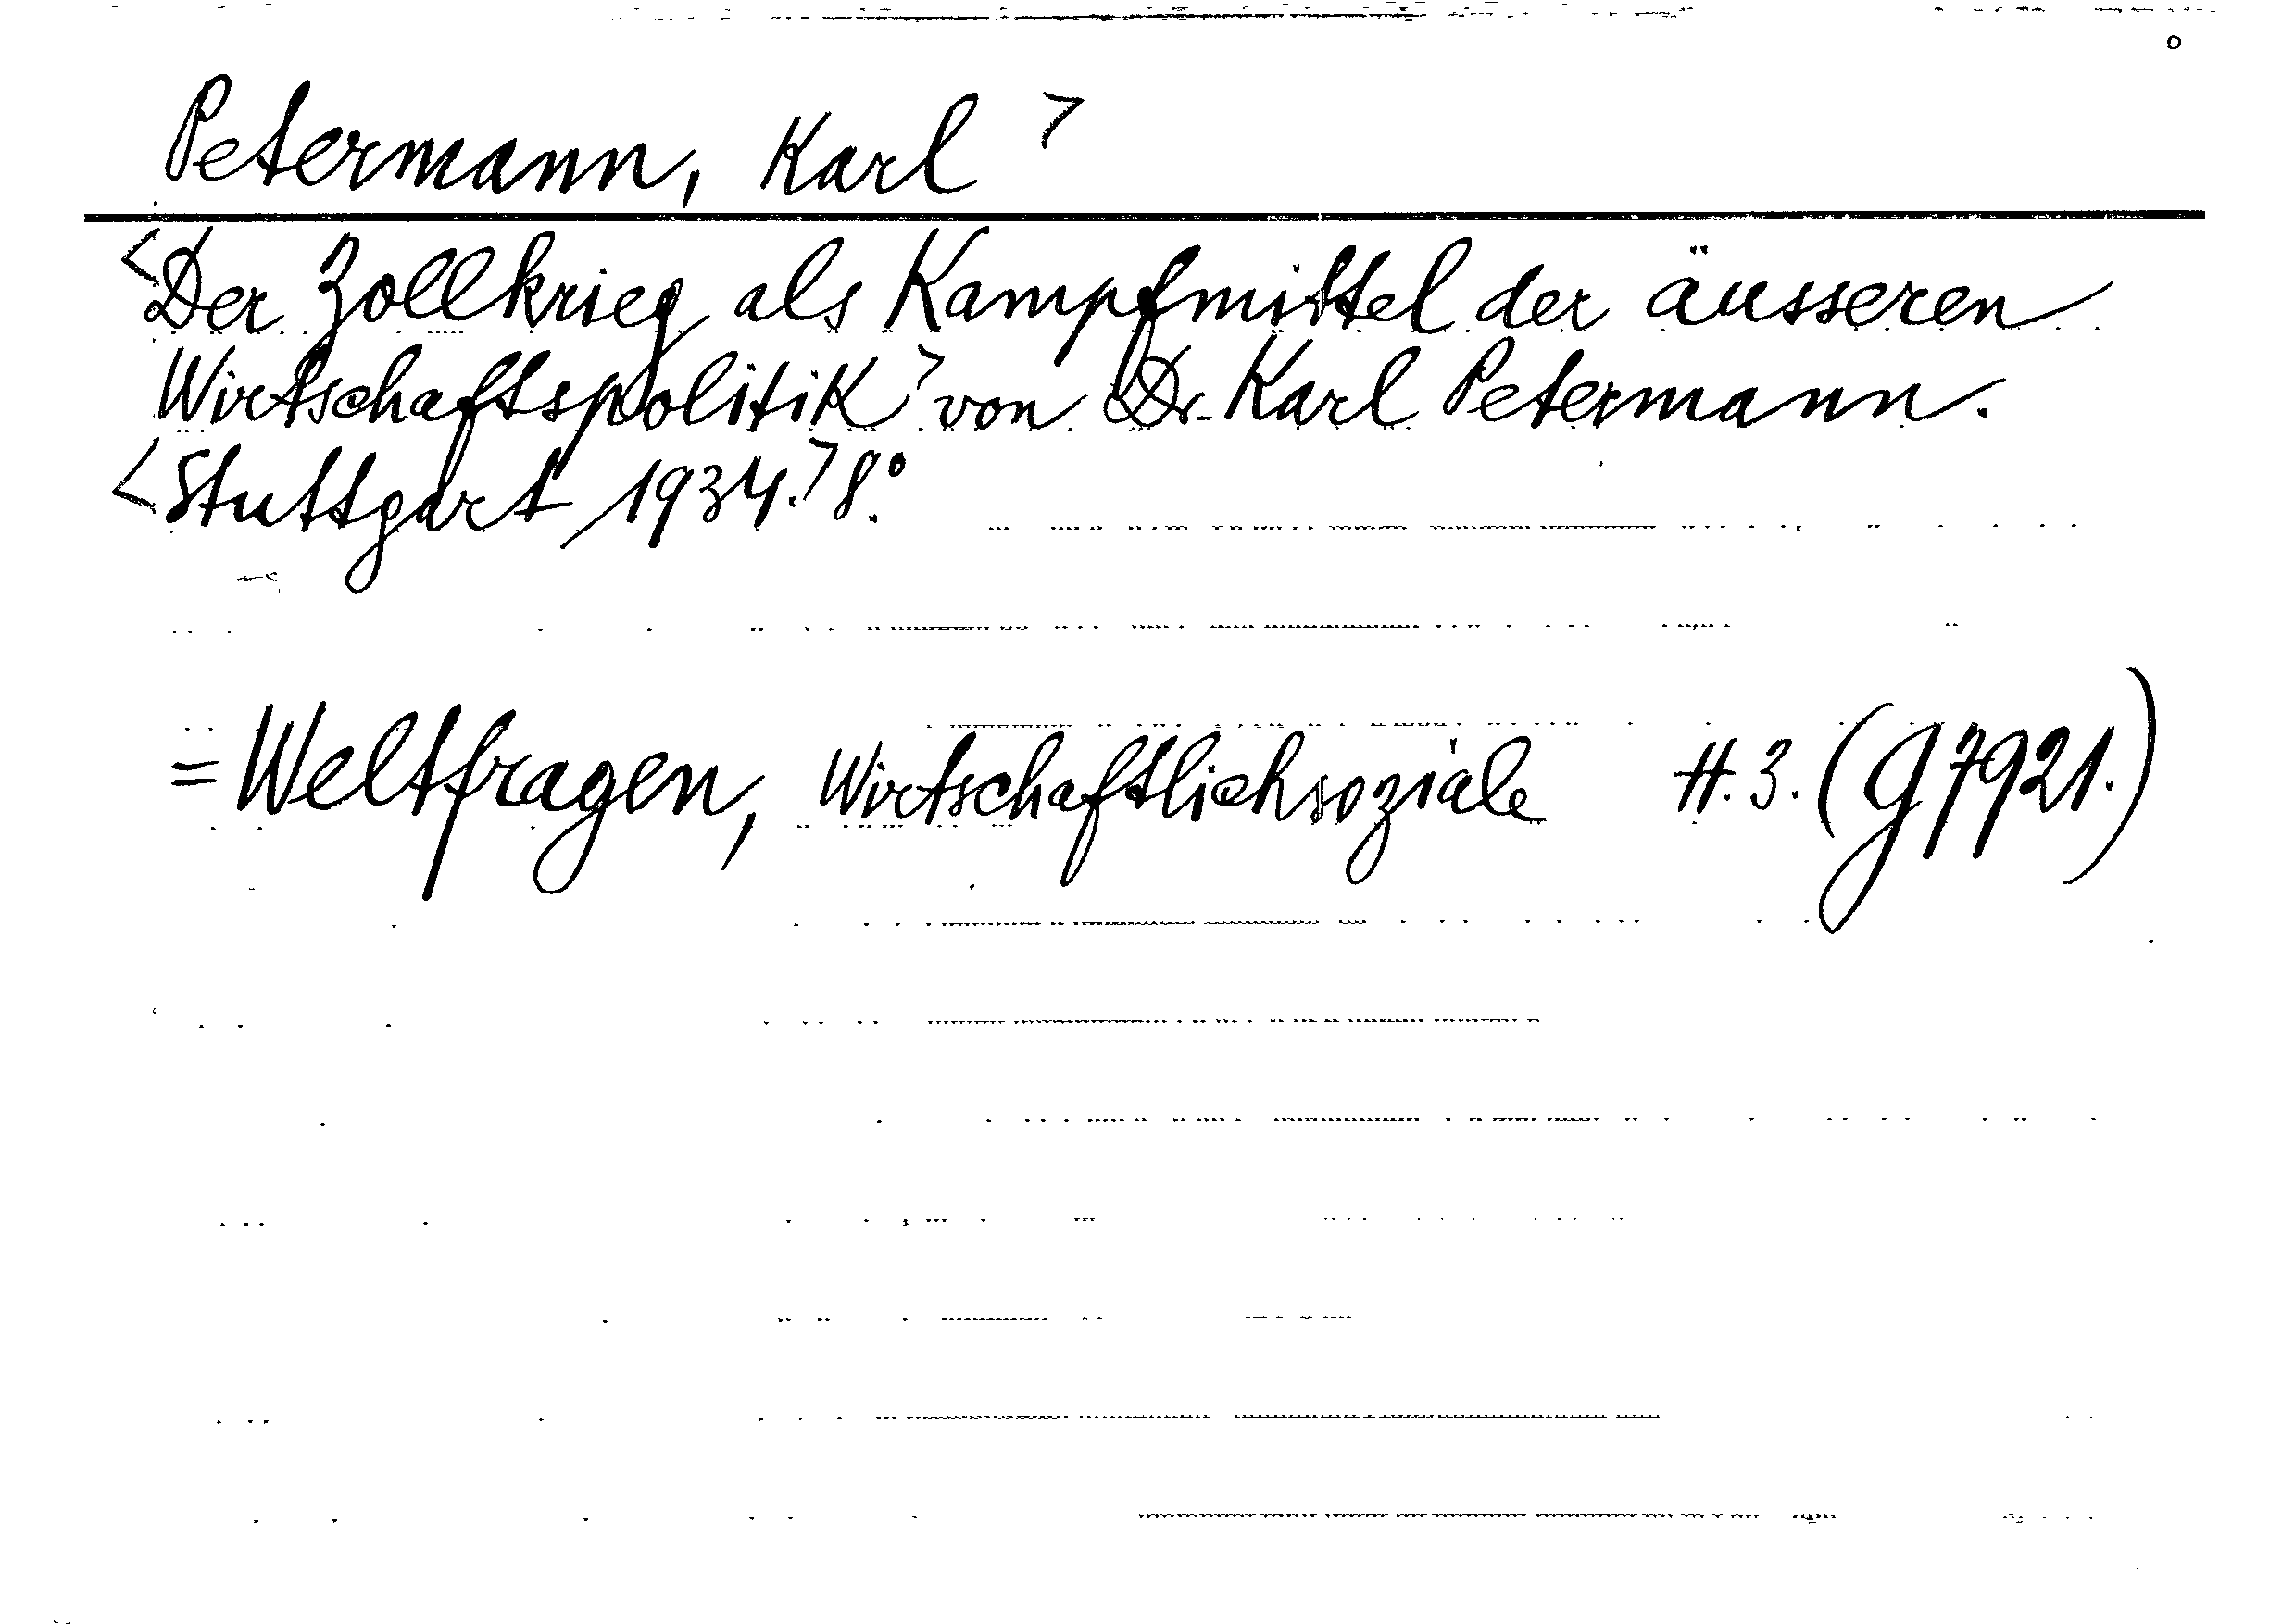 Petermann, Karl >
<Der Zollkrieg als Kampfmittel der äusseren
Wirtschaftspolitik> von Dr. Karl Petermann.
<Stuttgart 1934.> 8.°
= Weltfragen, Wirtschaftlichsoziale H. 3. (g 7921.)